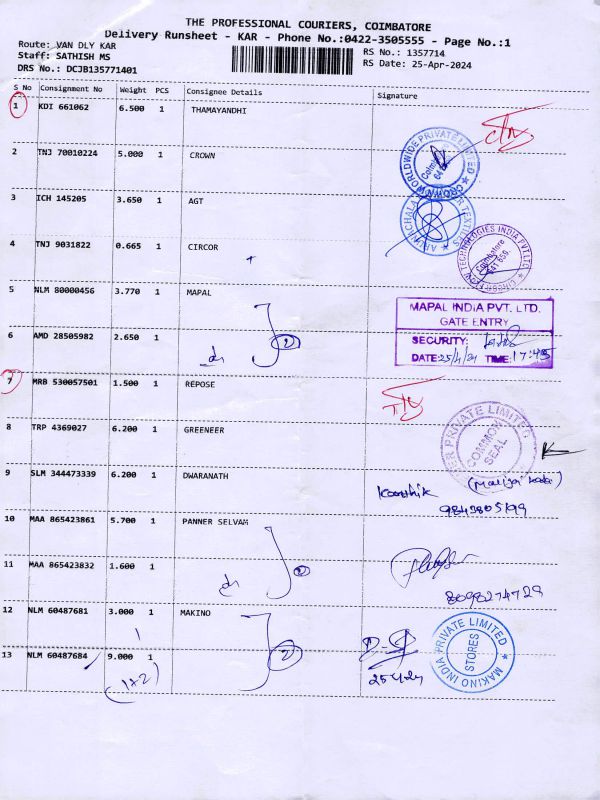 THE PROFESSIONAL COURIERS, COIMBATORE
Delivery Runsheet - KAR - Phone No.:0422-3505555 - Page No.:1
Route: VAN DLY KAR
Staff: SATHISH MS
DRS No.: DCJB135771401
RS No.: 1357714
RS Date: 25-Apr-2024
S No Consignment No Weight PCS Consignee Details Signature
1 KDI 661062 6.500 1 THAMAYANDHI
2 TNJ 70010224 5.000 1 CROWN
CROWN WORLDWIDE PRIVATE LIMITED
3 ICH 145205 3.650 1 AGT
4 TNJ 9031822 0.665 1 CIRCOR
TECHNOLOGIES INDIA PVT.LTD.
Coimbatore
5 NLM 80000456 3.770 1 MAPAL
MAPAL INDIA PVT. LTD.
GATE ENTRY
SECURITY:
DATE: 25/4/24 TIME: 17:45
6 AMD 28505982 2.650 1
2
7 MRB 530057501 1.500 1 REPOSE
8 TRP 4369027 6.200 1 GREENEER
PRIVATE LIMITED
COMMON SEAL
9 SLM 344473339 6.200 1 DWARANATH
Kaushik
10 MAA 865423861 5.700 1 PANNER SELVAM
11 MAA 865423832 1.600 1
2
8098274729
12 NLM 60487681 3.000 1 MAKINO
1
13 NLM 60487684 9.000 1
2
(1+2)
25/4/24
MAKINO INDIA PRIVATE LIMITED
STORES